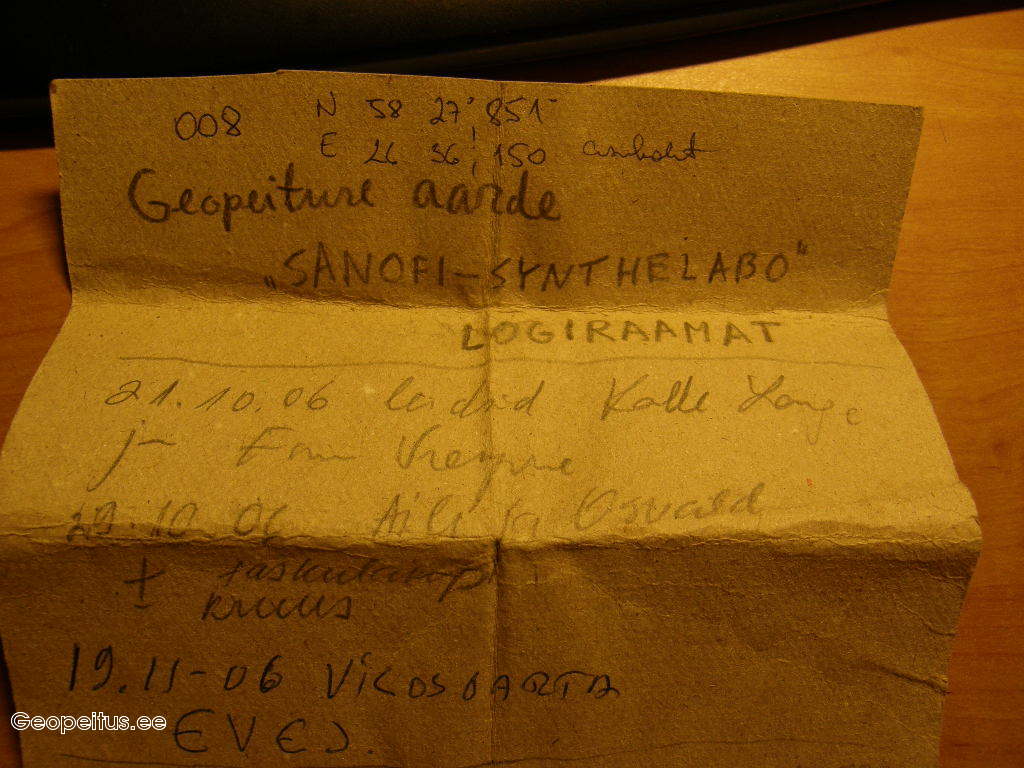 008 N 58 27' 851
E 26 36' 150
Geopeiture aarde
„SANOFI-SYNTHELABO"
LOGIRAAMAT
21.10.06 leidsid Kalle
ja
29.10.06 Aili ja Osvald
± taskulamp
kruus
19.11-06
EVEJ.
Geopeitus.ee